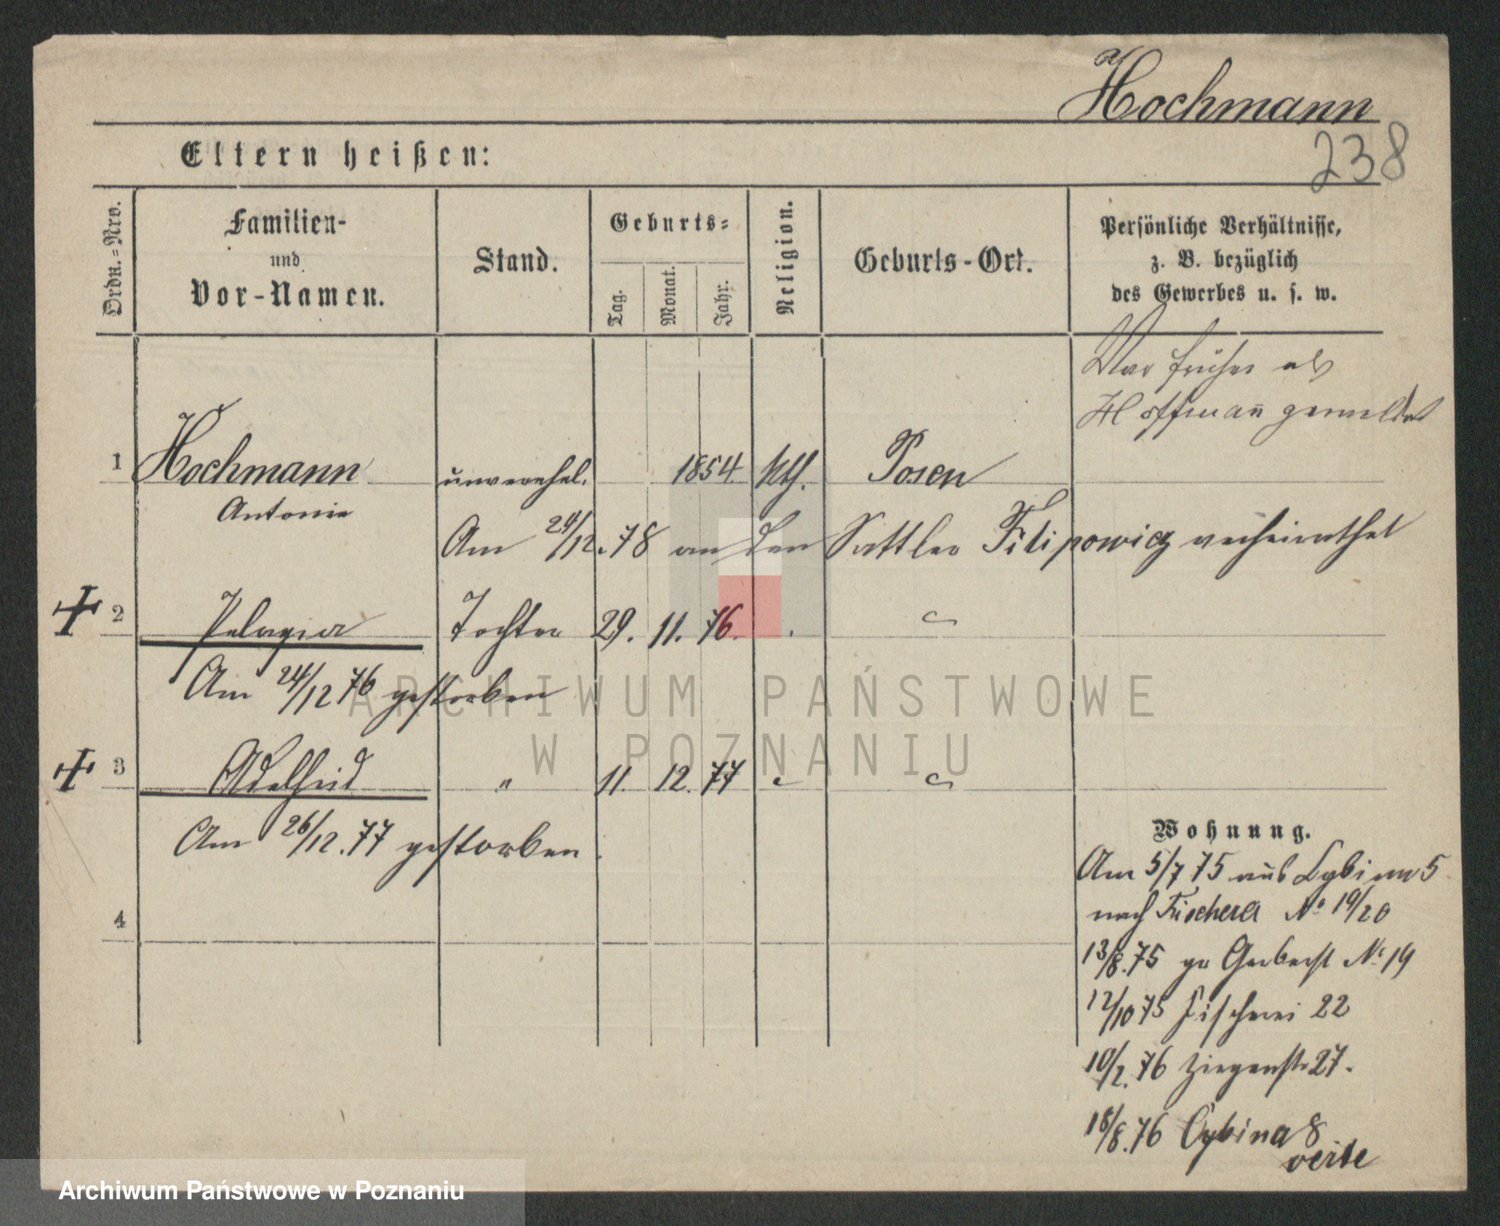 Hochmann
238
Eltern heißen:
Ordn.=Nro.
Familien-
und
Vor-Namen.
Stand.
Geburts=
Tag.
Monat.
Jahr.
Religion.
Geburts-Ort.
Persönliche Verhältnisse,
z. B. bezüglich
des Gewerbes u. s. w.
War früher als
Hoffman̄ gemeldet
1 Hochmann unverehel. 1854 kth. Posen
Antonie
Am 29/12.78 an den Sattler Filipowicz verheirathet
2 Pelagia Tochter 29. 11. 76.
Am 24/12 76 gestorben
3 Adelheid " 11. 12. 77
Am 26/12.77 gestorben
4
Wohnung.
Am 5/7 75 aus 5
nach Fischerei No 19/20
13/8.75 Gerberst No 19
12/10 75 Fischerei 22
10/2.76 Ziegenstr 27.
18/8.76 Cybina 8
verte
ARCHIWUM PAŃSTWOWE
W POZNANIU
Archiwum Państwowe w Poznaniu